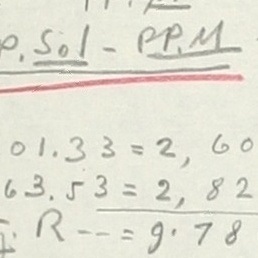 P. Sol - PP.M
01.33 = 2, 60
63.53 = 2, 82
R -- = 9.78